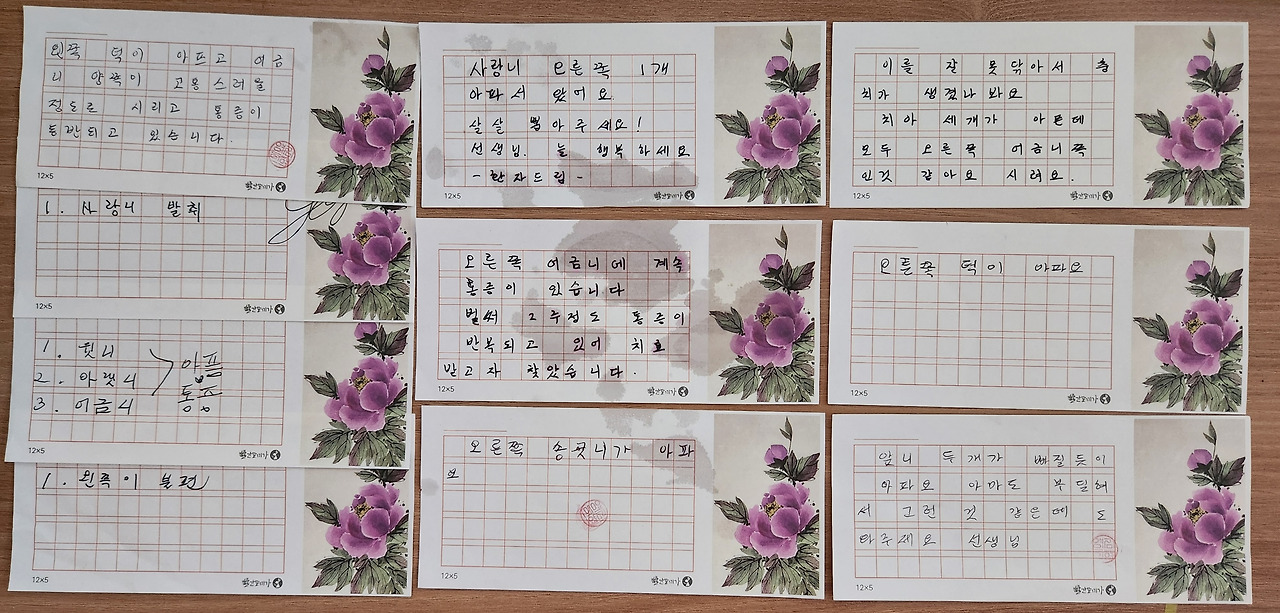 왼쪽 턱이 아프고 어금
니 양쪽이 고통스러울
정도로 시리고 통증이
동반되고 있습니다.
12×5
1. 사랑니 발취
12×5
1. 윗니
2. 아랫니
3. 어금니
아픔
통증
12×5
1. 왼쪽이 불편
12×5
사랑니 오른쪽 1개
아파서 왔어요.
살살 뽑아주세요!
선생님. 늘 행복하세요
- 환자드림 -
12×5
오른쪽 어금니에 계속
통증이 있습니다
벌써 2주정도 통증이
반복되고 있어 치료
받고자 찾았습니다.
12×5
오른쪽 송곳니가 아파
요
12×5
이를 잘 못 닦아서 충
치가 생겼나봐요
치아 세개가 아픈데
모두 오른쪽 어금니쪽
인것 같아요 시려요.
12×5
오른쪽 턱이 아파요
12×5
앞니 두개가 빠질듯이
아파요 아마도 부딪혀
서 그런 것 같은데 도
와주세요 선생님
12×5